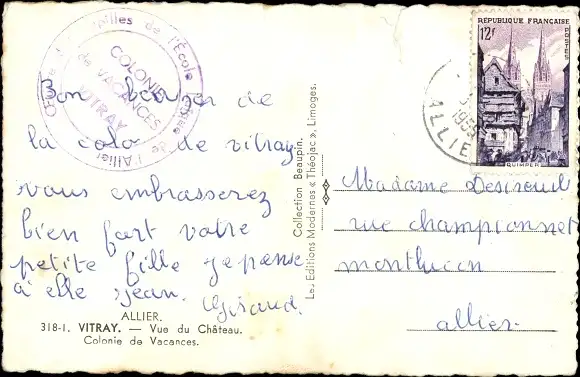 COLONIE
de VACANCES
VITRAY
de l'Allier
Bon baiser de
la colon de vitray
vous embrasserez
bien fort votre
petite fille je pense
à elle jean. Giraud.
ALLIER.
318-1. VITRAY. — Vue du Château.
Colonie de Vacances.
Collection Beaupin.
Les Editions Modernes « Théojac », Limoges.
REPUBLIQUE FRANÇAISE
12f
POSTES
QUIMPER
1955
ALLIE
Madame
rue championnet
montlucon
allier.